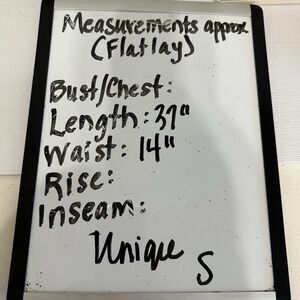 Measurements approx
(Flatlay)
Bust/Chest:
Length: 37"
Waist: 14"
Rise:
Inseam:
Unique
S